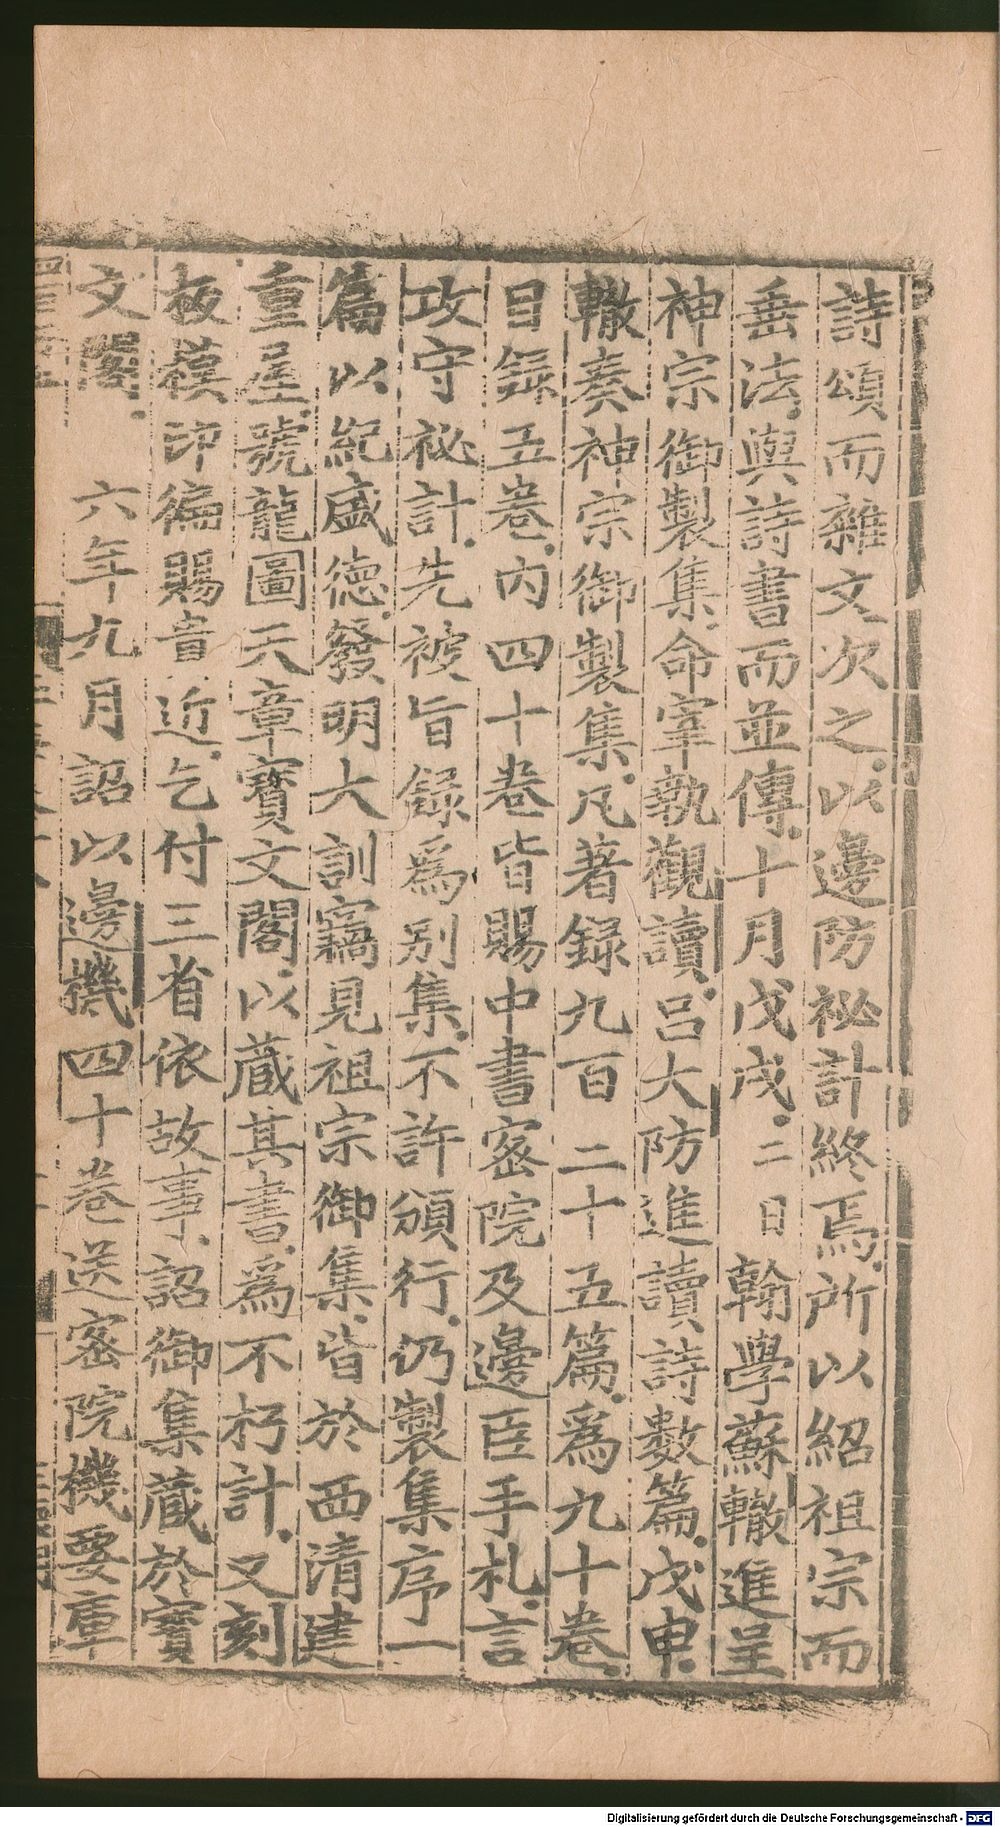 詩頌而雜文次之以邊防祕計終焉所以紹祖宗而
垂法與詩書而並傳十月戊戌二日翰學蘇轍進呈
神宗御製集命宰執觀讀呂大防進讀詩數篇戊申
轍奏神宗御製集凡著録九百二十五篇爲九十卷
目録五卷内四十卷皆賜中書密院及邊臣手札言
攻守祕計先被旨録爲别集不許頒行仍製集序一
篇以紀盛德發明大訓竊見祖宗御集皆於西清建
重屋號龍圖天章寶文閣以藏其書爲不朽計又刻
板模印徧賜貴近乞付三省依故事詔御集藏於寶
文閣 六年九月詔以邊機四十卷送密院機要庫
Digitalisierung gefördert durch die Deutsche Forschungsgemeinschaft - DFG